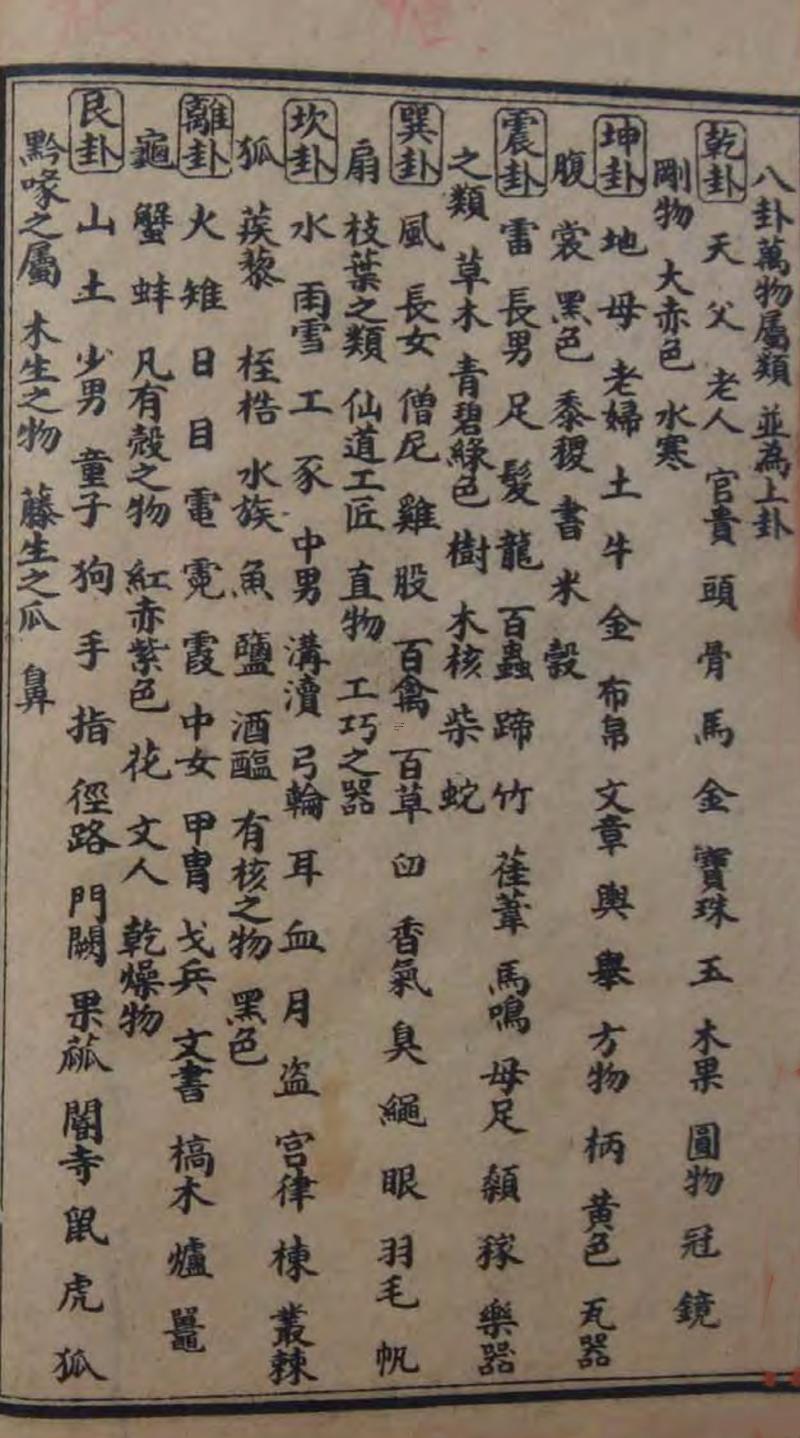 八卦萬物屬類 並為上卦
乾卦 天 父 老人 官貴 頭 骨 馬 金 寶珠 玉 木果 圓物 冠 鏡
剛物 大赤色 水寒
坤卦 地 母 老婦 土 牛 金 布帛 文章 輿 轝 方物 柄 黃色 瓦器
腹 裳 黑色 黍稷 書 米 穀
震卦 雷 長男 足 髮 龍 百蟲 蹄 竹 萑葦 馬鳴 母足 顙 稼 樂器
之類 草木 青碧綠色 樹 木核 柴 蛇
巽卦 風 長女 僧尼 雞 股 百禽 百草 臼 香氣 臭 繩 眼 羽毛 帆
扇 枝葉之類 仙道工匠 直物 工巧之器
坎卦 水 雨雪 工 豕 中男 溝瀆 弓輪 耳 血 月 盗 宫律 棟 叢棘
狐 蒺藜 桎梏 水族 魚 鹽 酒醢 有核之物 黑色
離卦 火 雉 日 目 電 霓 霞 中女 甲冑 戈兵 文書 槁木 爐 鼉
龜 蟹 蚌 凡有殼之物 紅赤紫色 花 文人 乾燥物
艮卦 山 土 少男 童子 狗 手 指 徑路 門闕 果蓏 閽寺 鼠 虎 狐
黔喙之屬 木生之物 藤生之瓜 鼻